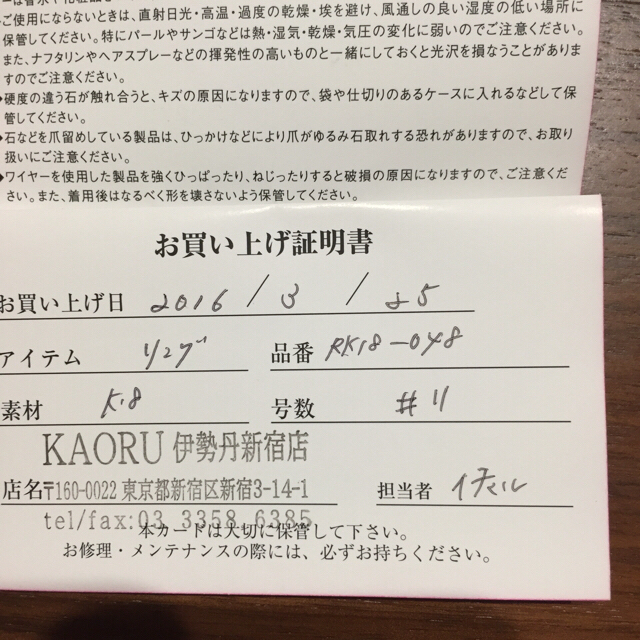 ご使用にならないときは、直射日光・高温・過度の乾燥・埃を避け、風通しの良い湿度の低い場所に
保管してください。特にパールやサンゴなどは熱・湿気・乾燥・気圧の変化に弱いのでご注意ください。
また、ナフタリンやヘアスプレーなどの揮発性の高いものと一緒にしておくと光沢を損なうことがありま
すのでご注意ください。
◆硬度の違う石が触れ合うと、キズの原因になりますので、袋や仕切りのあるケースに入れるなどして保
管してください。
◆石などを爪留めしている製品は、ひっかけなどにより爪がゆるみ石取れする恐れがありますので、お取り
扱いにご注意ください。
◆ワイヤーを使用した製品を強くひっぱったり、ねじったりすると破損の原因になりますので、ご注意くだ
さい。また、着用後はなるべく形を壊さないよう保管してください。
お買い上げ証明書
お買い上げ日 2016 / 3 / 25
アイテム リング 品番 RK18-048
素材 K18 号数 #11
KAORU 伊勢丹新宿店
店名 〒160-0022 東京都新宿区新宿3-14-1 担当者
tel/fax:03 3358 6385
本カードは大切に保管して下さい。
お修理・メンテナンスの際には、必ずお持ちください。